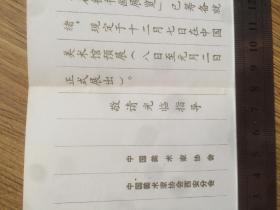 展览》已筹备就
绪，现定于十二月七日在中国
美术馆预展（八日至元月二日
正式展出）。
敬请光临指导
中国美术家协会
中国美术家协会西安分会